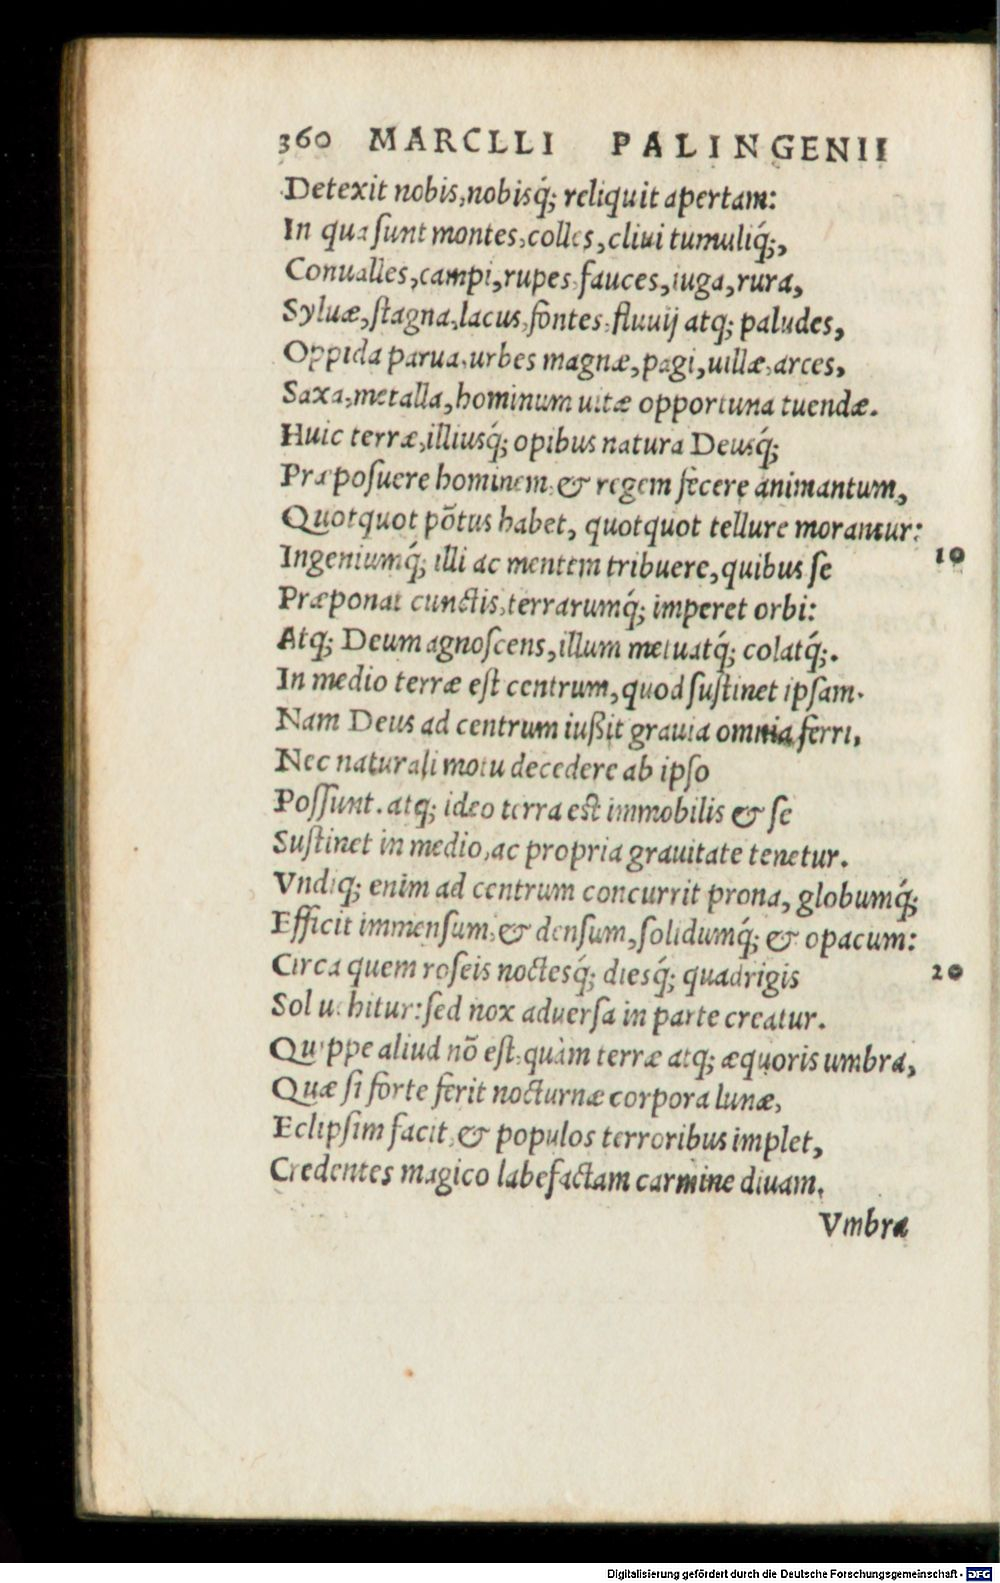 360 MARCLLI PALINGENII
Detexit nobis, nobisq́; reliquit apertam:
In qua ſunt montes, colles, cliui tumuliq́;,
Conualles, campi, rupes, fauces, iuga, rura,
Syluæ, ſtagna, lacus, fontes, fluuij atq; paludes,
Oppida parua, urbes magnæ, pagi, uillæ, arces,
Saxa, metalla, hominum uitæ opportuna tuendæ.
Huic terræ, illiusq́; opibus natura Deusq́;
Præpoſuere hominem, & regem fecere animantum,
Quotquot põtus habet, quotquot tellure morantur:
Ingeniumq́; illi ac mentem tribuere, quibus ſe 10
Præponat cunctis, terrarumq́; imperet orbi:
Atq; Deum agnoſcens, illum metuatq́; colatq́;.
In medio terræ eſt centrum, quod ſuſtinet ipſam.
Nam Deus ad centrum iußit grauia omnia ferri,
Nec naturali motu decedere ab ipſo
Poſſunt. atq; ideo terra eſt immobilis & ſe
Suſtinet in medio, ac propria grauitate tenetur.
Vndiq; enim ad centrum concurrit prona, globumq́;
Efficit immenſum, & denſum, ſolidumq́; & opacum:
Circa quem roſeis noctesq́; diesq́; quadrigis 20
Sol uehitur: ſed nox aduerſa in parte creatur.
Quippe aliud nõ eſt, quàm terræ atq; æquoris umbra,
Quæ ſi forte ferit nocturnæ corpora lunæ,
Eclipſim facit, & populos terroribus implet,
Credentes magico labefactam carmine diuam.
Vmbra
Digitalisierung gefördert durch die Deutsche Forschungsgemeinschaft - DFG